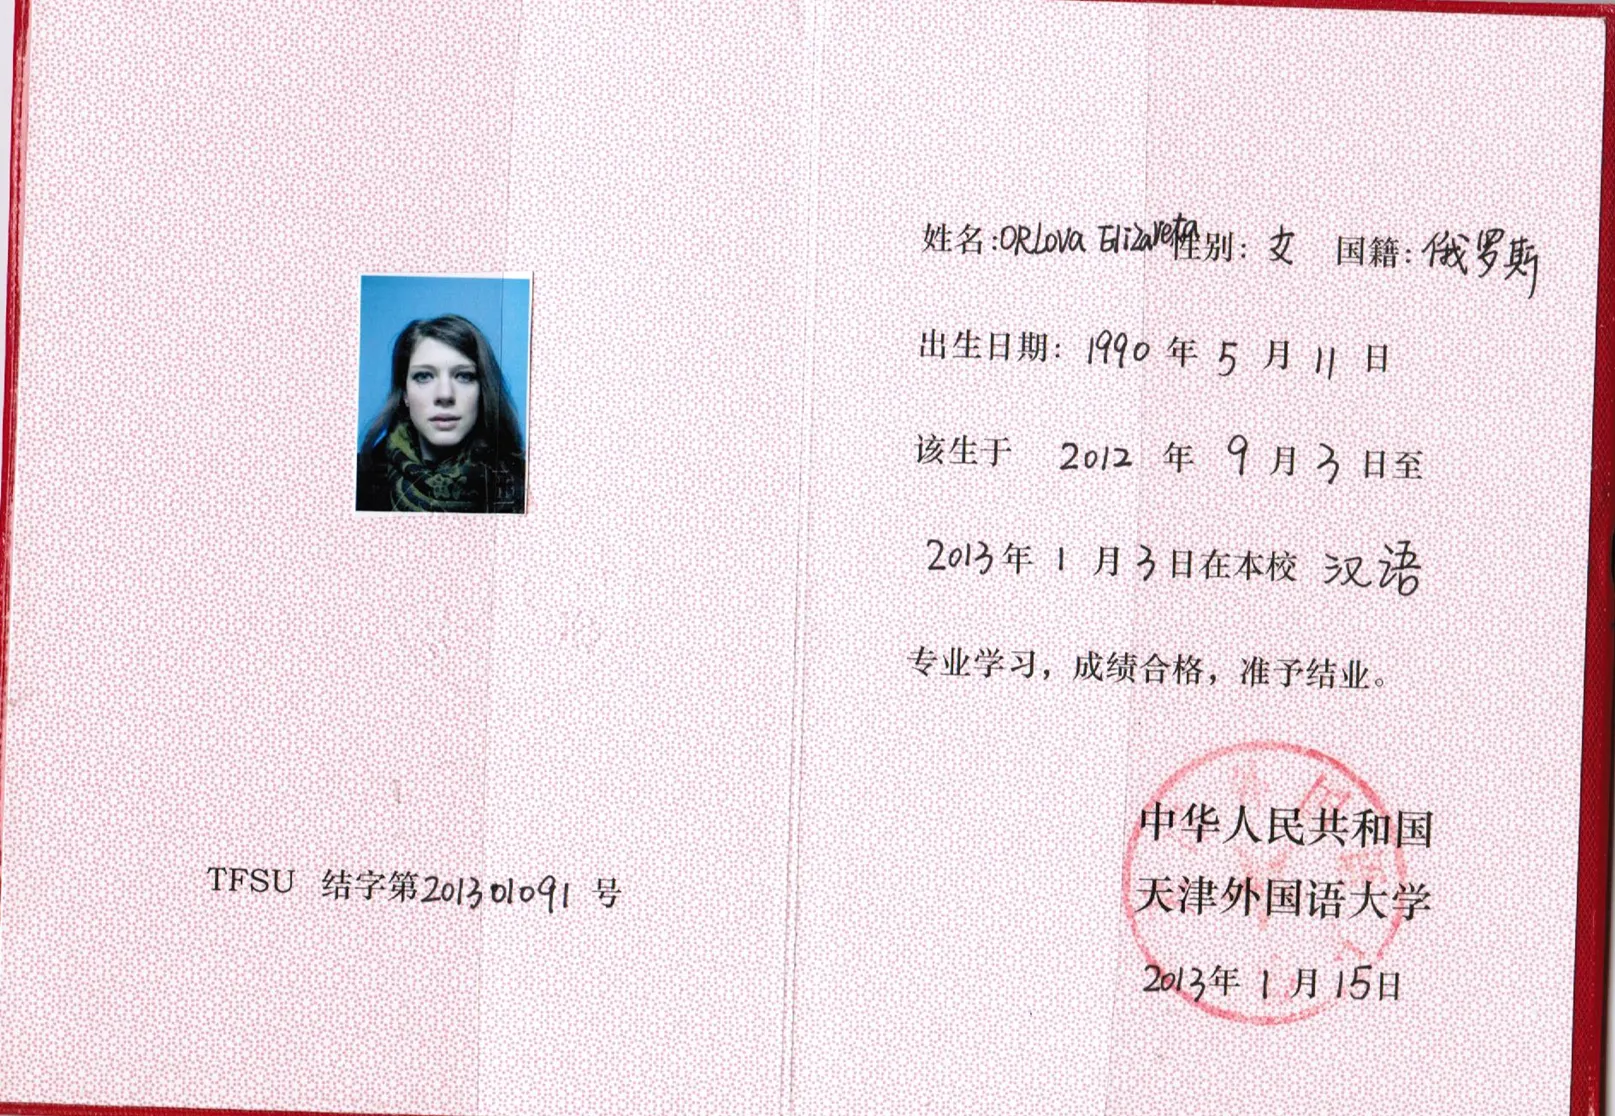 姓名:ORLova Elizaveta 性别: 女 国籍: 俄罗斯
出生日期: 1990 年 5 月 11 日
该生于 2012 年 9 月 3 日至
2013 年 1 月 3 日在本校 汉语
专业学习，成绩合格，准予结业。
中华人民共和国
天津外国语大学
2013年 1 月 15日
TFSU 结字第201301091 号